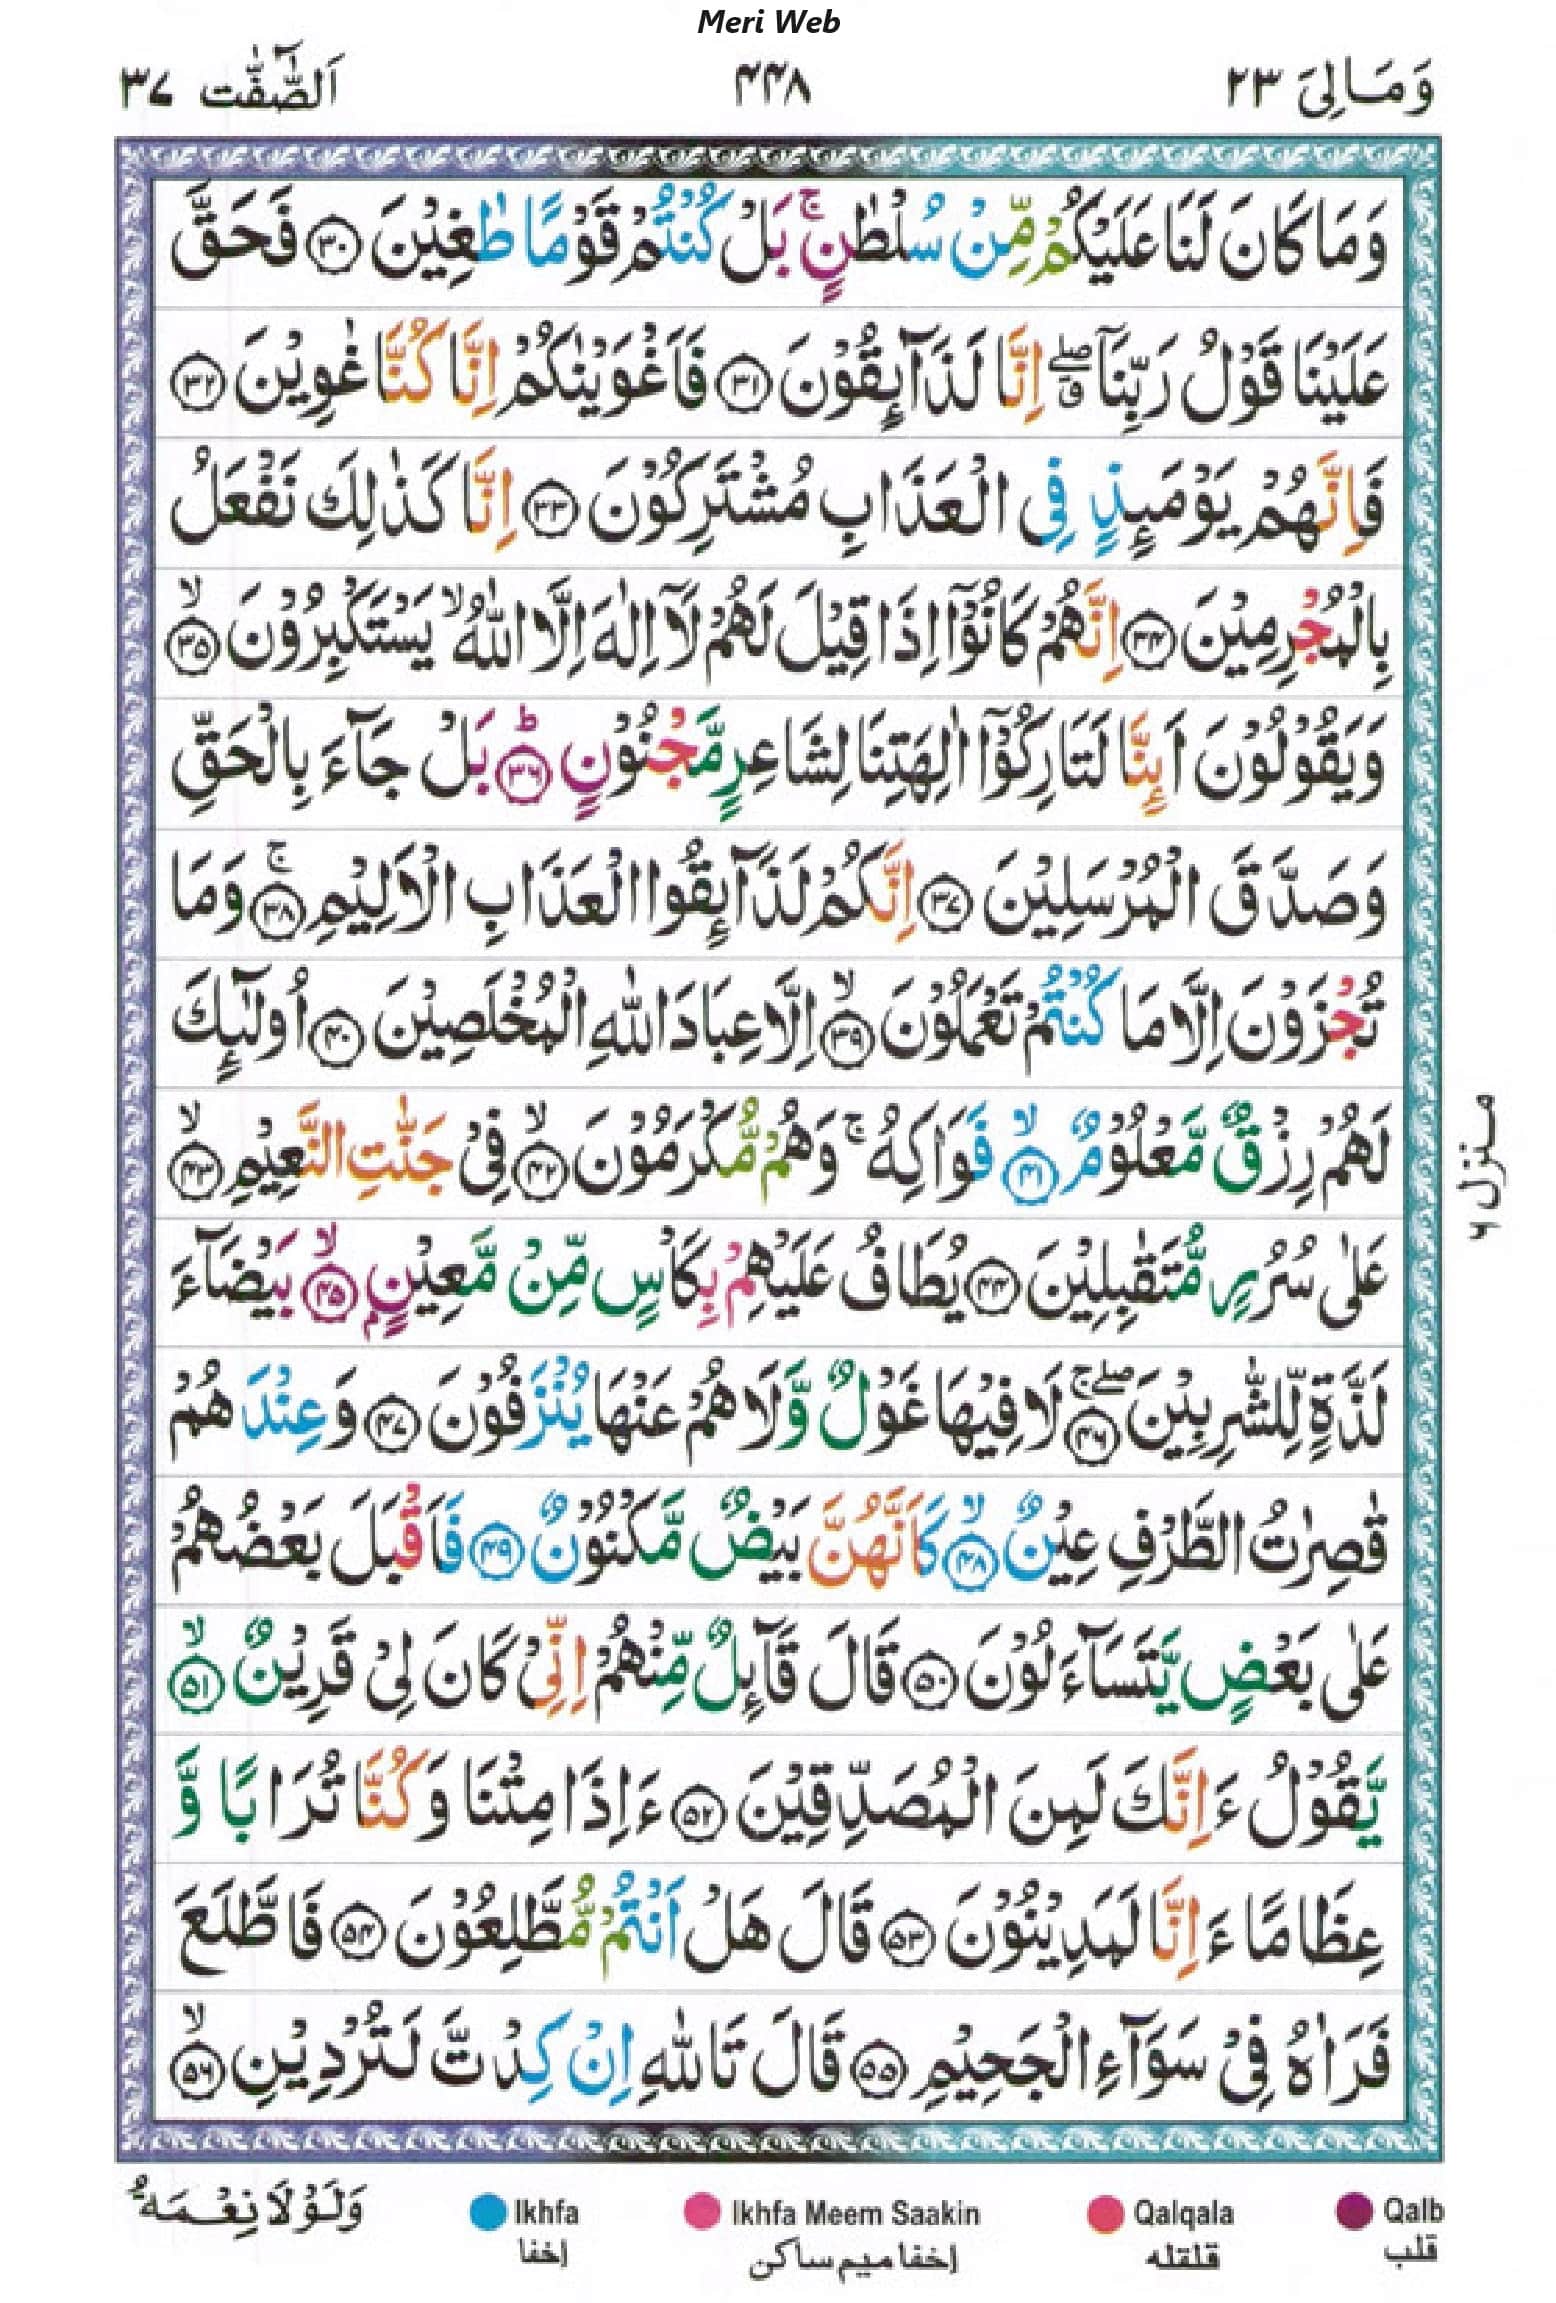 Meri Web
وَمَالِیَ ٢٣
٤٤٨
اَلصّٰٓفّٰت ٣٧
وَمَا كَانَ لَنَا عَلَيْكُمْ مِّنْ سُلْطٰنٍ ۚ بَلْ كُنْتُمْ قَوْمًا طٰغِيْنَ ﴿٣٠﴾ فَحَقَّ
عَلَيْنَا قَوْلُ رَبِّنَاۤ ۖ ق اِنَّا لَذَآئِقُوْنَ ﴿٣١﴾ فَاَغْوَيْنٰكُمْ اِنَّا كُنَّا غٰوِيْنَ ﴿٣٢﴾
فَاِنَّهُمْ يَوْمَئِذٍ فِى الْعَذَابِ مُشْتَرِكُوْنَ ﴿٣٣﴾ اِنَّا كَذٰلِكَ نَفْعَلُ
بِالْمُجْرِمِيْنَ ﴿٣٤﴾ اِنَّهُمْ كَانُوْٓا اِذَا قِيْلَ لَهُمْ لَآ اِلٰهَ اِلَّا اللّٰهُ ۙ يَسْتَكْبِرُوْنَ ۙ ﴿٣٥﴾
وَيَقُوْلُوْنَ اَئِنَّا لَتَارِكُوْٓا اٰلِهَتِنَا لِشَاعِرٍ مَّجْنُوْنٍ ؕ ﴿٣٦﴾ بَلْ جَآءَ بِالْحَقِّ
وَصَدَّقَ الْمُرْسَلِيْنَ ﴿٣٧﴾ اِنَّكُمْ لَذَآئِقُوا الْعَذَابِ الْاَلِيْمِ ۚ ﴿٣٨﴾ وَمَا
تُجْزَوْنَ اِلَّا مَا كُنْتُمْ تَعْمَلُوْنَ ۙ ﴿٣٩﴾ اِلَّا عِبَادَ اللّٰهِ الْمُخْلَصِيْنَ ﴿٤٠﴾ اُولٰٓئِكَ
لَهُمْ رِزْقٌ مَّعْلُوْمٌ ۙ ﴿٤١﴾ فَوَاكِهُ ۚ وَهُمْ مُّكْرَمُوْنَ ۙ ﴿٤٢﴾ فِىْ جَنّٰتِ النَّعِيْمِ ۙ ﴿٤٣﴾
عَلٰى سُرُرٍ مُّتَقٰبِلِيْنَ ﴿٤٤﴾ يُطَافُ عَلَيْهِمْ بِكَاْسٍ مِّنْ مَّعِيْنٍۭ ۙ ﴿٤٥﴾ بَيْضَآءَ
لَذَّةٍ لِّلشّٰرِبِيْنَ ۖۚ ﴿٤٦﴾ لَا فِيْهَا غَوْلٌ وَّلَا هُمْ عَنْهَا يُنْزَفُوْنَ ﴿٤٧﴾ وَعِنْدَهُمْ
قٰصِرٰتُ الطَّرْفِ عِيْنٌ ۙ ﴿٤٨﴾ كَاَنَّهُنَّ بَيْضٌ مَّكْنُوْنٌ ﴿٤٩﴾ فَاَقْبَلَ بَعْضُهُمْ
عَلٰى بَعْضٍ يَّتَسَآءَلُوْنَ ﴿٥٠﴾ قَالَ قَآئِلٌ مِّنْهُمْ اِنِّىْ كَانَ لِىْ قَرِيْنٌ ۙ ﴿٥١﴾
يَّقُوْلُ ءَاِنَّكَ لَمِنَ الْمُصَدِّقِيْنَ ﴿٥٢﴾ ءَاِذَا مِتْنَا وَكُنَّا تُرَابًا وَّ
عِظَامًا ءَاِنَّا لَمَدِيْنُوْنَ ﴿٥٣﴾ قَالَ هَلْ اَنْتُمْ مُّطَّلِعُوْنَ ﴿٥٤﴾ فَاطَّلَعَ
فَرَاٰهُ فِىْ سَوَآءِ الْجَحِيْمِ ﴿٥٥﴾ قَالَ تَاللّٰهِ اِنْ كِدْتَّ لَتُرْدِيْنِ ۙ ﴿٥٦﴾
منزل ٦
وَلَوْلَا نِعْمَةُ
Ikhfa
Ikhfa Meem Saakin
Qalqala
Qalb
اخفا
اخفا میم ساکن
قلقله
قلب